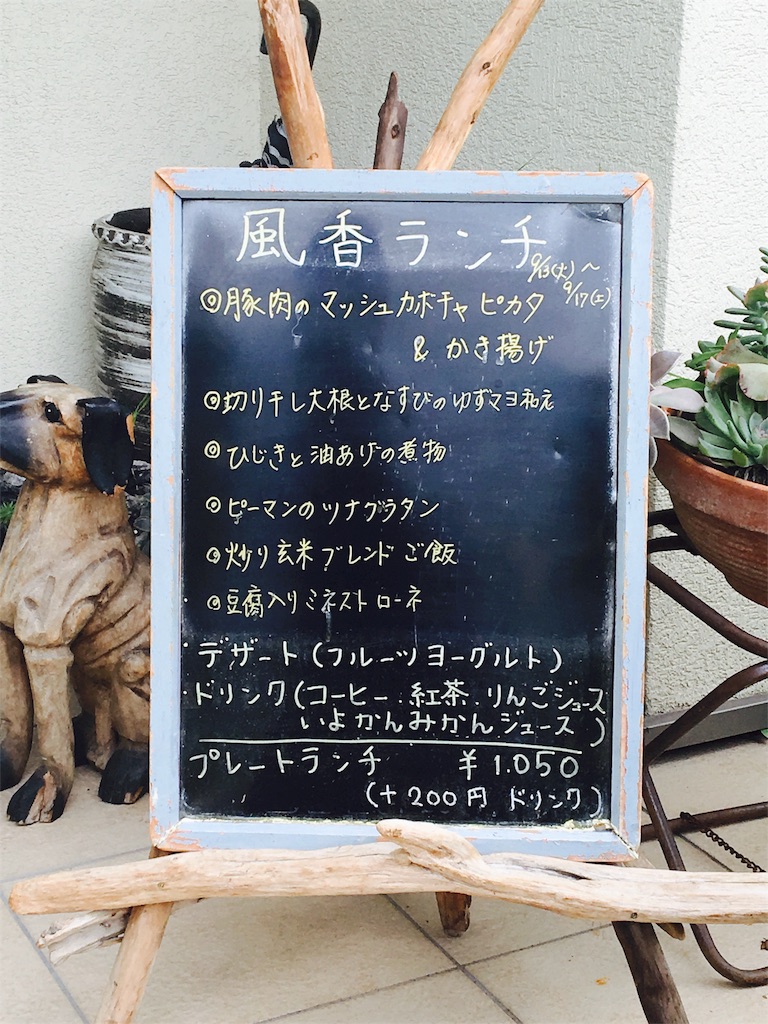 風香ランチ
9/13(火)〜
9/17(土)
◎豚肉のマッシュカボチャピカタ
& かき揚げ
◎切り干し大根となすびのゆずマヨ和え
◎ひじきと油あげの煮物
◎ピーマンのツナグラタン
◎炒り玄米ブレンドご飯
◎豆腐入りミネストローネ
・デザート(フルーツヨーグルト)
・ドリンク(コーヒー.紅茶.りんごジュース
いよかんみかんジュース)
プレートランチ ¥1.050
(+200円 ドリンク)